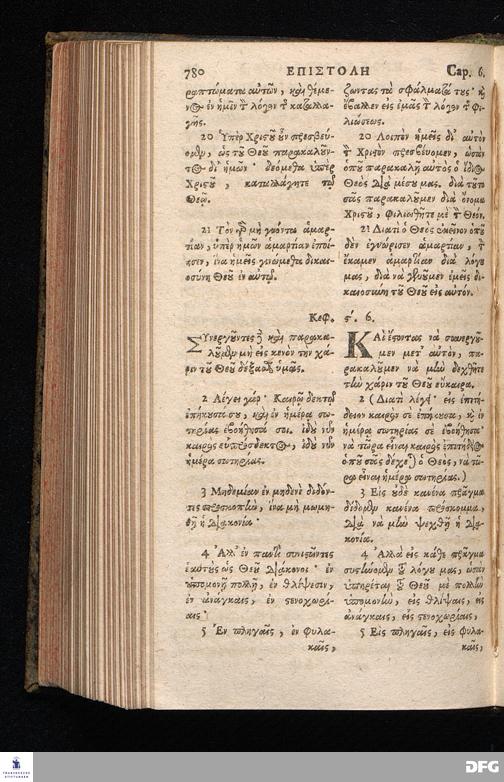 780 ΕΠΙΣΤΟΛΗ Cap. 6.
ραπτώματα αὐτῶν, καὶ θέμε-
νος ἐν ἡμῖν τ̀ λόγον τ̃ καταλλα-
γῆς.
20 Ὑπὲρ Χριστοῦ οὖν πρεσβεύ-
ομεν, ὡς τοῦ Θεοῦ παρακαλοῦν-
τος δι' ἡμῶν· δεόμεθα ὑπὲρ
Χριστοῦ, καταλλάγητε τῷ
Θεῷ.
21 Τὸν γὸ μὴ γνόντα ἁμαρ-
τίαν, ὑπὲρ ἡμῶν ἁμαρτίαν ἐποί-
ησεν, ἵνα ἡμεῖς γινώμεθα δικαι-
οσύνη Θεοῦ ἐν αὐτῷ.
Κεφ.
Συνεργοῦντες δὲ καὶ παρακα-
λοῦμεν μὴ εἰς κενὸν τὴν χά-
ριν τοῦ Θεοῦ δέξασθ ὑμᾶς.
2 Λέγει γάρ· Καιρῷ δεκτῷ
ἐπήκουσά σου, καὶ ἐν ἡμέρᾳ σω-
τηρίας ἐβοήθησά σοι. ἰδοὺ νῦν
καιρὸς εὐπρόσδεκτος, ἰδοὺ νῦν
ἡμέρα σωτηρίας.
3 Μηδεμίαν ἐν μηδενὶ διδόν-
τες προσκοπὴν, ἵνα μὴ μωμη-
θῇ ἡ διακονία·
4 Ἀλλ' ἐν παντὶ συνιστῶντες
ἑαυτοὺς ὡς Θεοῦ διάκονοι· ἐν
ὑπομονῇ πολλῇ, ἐν θλίψεσιν,
ἐν ἀνάγκαις, ἐν στενοχωρί-
αις·
5 Ἐν πληγαῖς, ἐν φυλα-
καῖς,
ζωντας τὰ σφάλματά τους· κ̀
ἔβαλλεν εἰς ἐμᾶς τ̀ λόγον τ̃ φι-
λιώσεως.
20 Λοιπὸν ἡμεῖς δι' αὐτὸν
τ̀ Χριστὸν πρεσβεύομεν, ὡσὰν
ὁποῦ παρακαλῇ αὐτὸς ὁ ἴδιος
Θεὸς διὰ μέσου μας. διὰ τοῦτο
σᾶς παρακαλοῦμεν διὰ ὄνομα
Χριστοῦ, φιλιωθῆτε μὲ τ̀ Θεόν.
21 Διατὶ ὁ Θεὸς ἐκεῖνον ὁποῦ
δὲν ἐγνώρισεν ἁμαρτίαν, τ̀
ἔκαμεν ἁμαρτίαν διὰ λόγου
μας, διὰ νὰ γενοῦμεν ἐμεῖς δι-
καιοσύνη τοῦ Θεοῦ εἰς αὐτόν.
ς. 6.
Καὶ ἔστοντας νὰ συνεργοῦ-
μεν μετ' αὐτὸν, πα-
ρακαλοῦμεν νὰ μὴν δεχθῆτε
τὴν χάριν τοῦ Θεοῦ εὔκαιρα.
2 (Διατὶ λέγει· εἰς ἐπιτή-
δειον καιρὸν σὲ ἐπήκουσα, κ̀ ἐν
ἡμέρᾳ σωτηρίας σὲ ἐβοήθησα·
νὰ τώρα εἶναι καιρὸς ἐπιτήδειος
ὁποῦ σᾶς δέχεται ὁ Θεὸς, νὰ τώ-
ρα εἶναι ἡμέρα σωτηρίας.)
3 Εἰς οὐδὲ κανένα πρᾶγμα
δίδομεν κανένα πρόσκομμα,
διὰ νὰ μὴν ψεχθῇ ἡ δια-
κονία.
4 Ἀλλὰ εἰς κάθε πρᾶγμα
συσταίνομεν τοῦ λόγου μας, ὡσὰν
ὑπηρέται τοῦ Θεοῦ μὲ πολλὴν
ὑπομονὴν, εἰς θλίψαις, εἰς
ἀνάγκαις, εἰς στενοχωρίαις,
5 Εἰς πληγαῖς, εἰς φυλα-
καῖς,
FRANCKESCHE
STIFTUNGEN
DFG